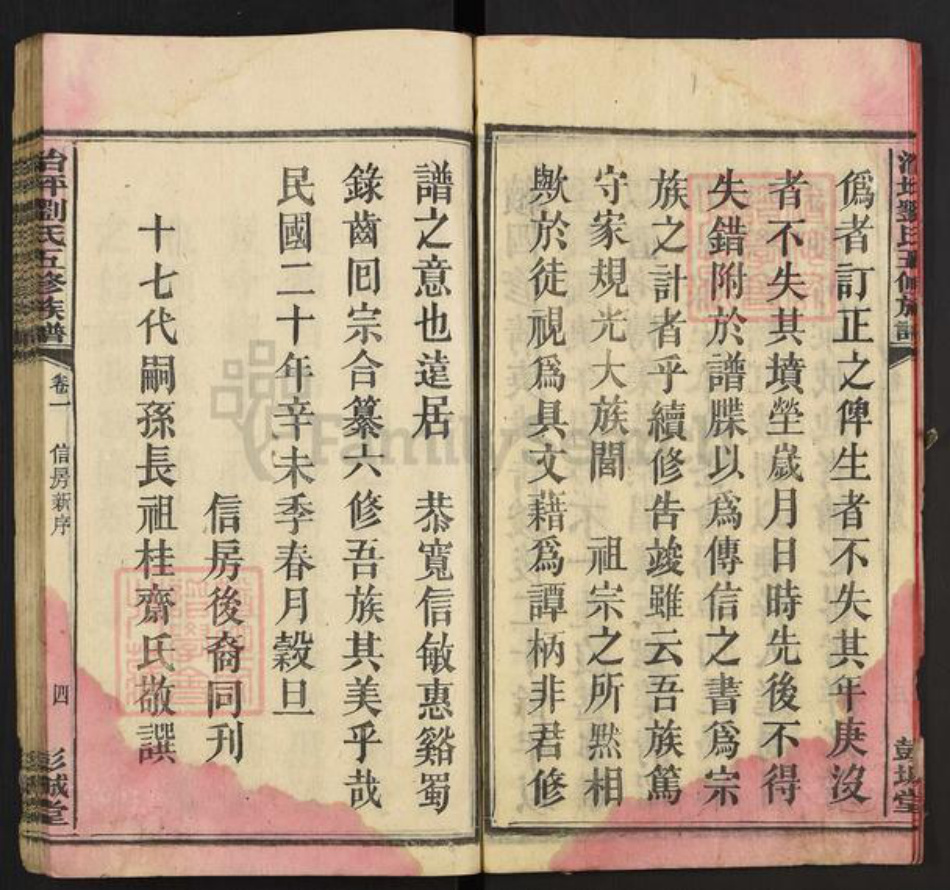 僞者訂正之俾生者不失其年庚沒
者不失其墳塋歲月日時先後不得
失錯附於譜牒以爲傳信之書爲宗
族之計者乎續修告竣雖云吾族篤
守家規光大族閭 祖宗之所默相
歟於徒視爲具文藉爲譚柄非君修
譜之意也遠居 恭寬信敏惠谿蜀
錄齒回宗合纂六修吾族其美乎哉
民國二十年辛未季春月穀旦
信房後裔同刊
十七代嗣孫長祖桂齋氏敬譔
治平劉氏五修族譜
卷一
信房新序
四
彭城堂